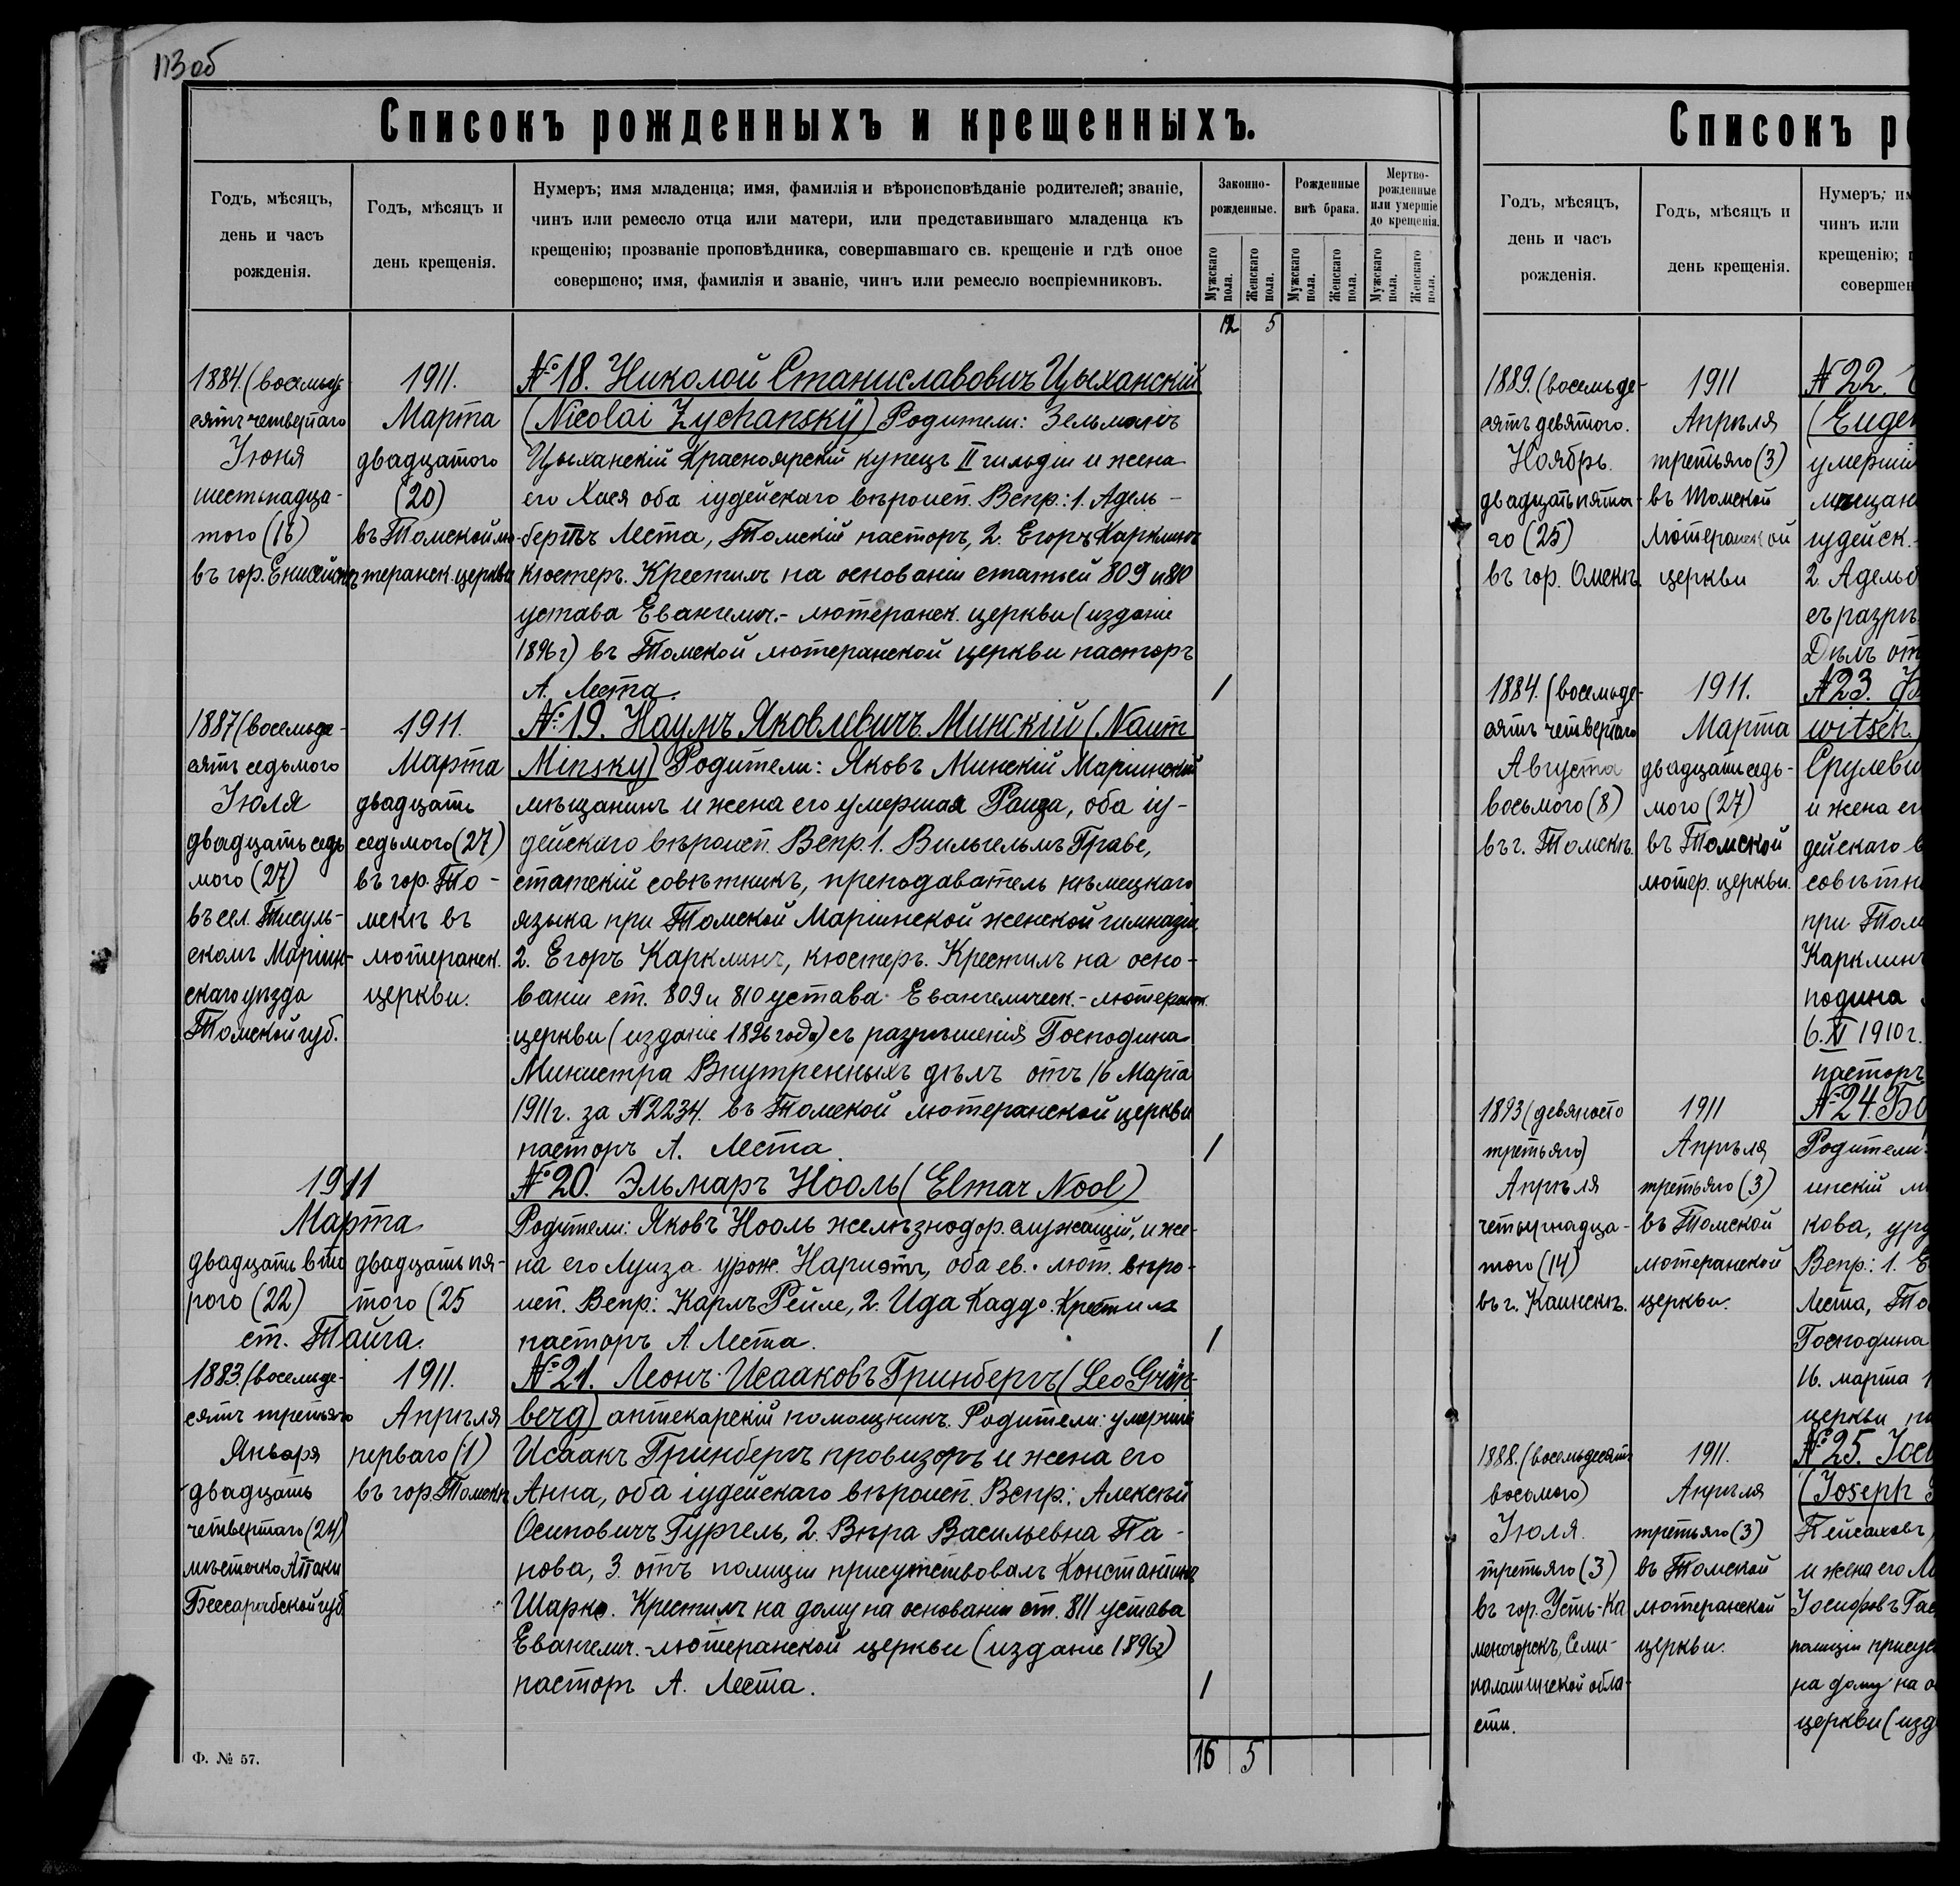 113 об
Списокъ рожденныхъ и крещенныхъ.
Годъ, мѣсяцъ,
день и часъ
рожденія.
Годъ, мѣсяцъ и
день крещенія.
Нумеръ; имя младенца; имя, фамилія и вѣроисповѣданіе родителей; званіе,
чинъ или ремесло отца или матери, или представившаго младенца къ
крещенію; прозваніе проповѣдника, совершавшаго св. крещеніе и гдѣ оное
совершено; имя, фамилія и званіе, чинъ или ремесло воспріемниковъ.
Законно-
рожденные.
Рожденные
внѣ брака.
Мертво-
рожденные
или умершіе
до крещенія.
Мужскаго пола.
Женскаго пола.
Мужскаго пола.
Женскаго пола.
Мужскаго пола.
Женскаго пола.
12 5
1884. (восемьде-
сятъ четвертаго
Іюня
шестнадца-
того (16)
въ гор. Енисейскѣ
1911.
Марта
двадцатого
(20)
въ Томской лю-
теранск. церкви
№ 18. Николой Станиславовичъ Цыханскій
(Nicolai Zychansky) Родители: Зельманъ
Цыханскій Красноярскій купецъ II гильдіи и жена
его Хася оба іудейскаго вѣроисп. Воспр.: 1. Адель-
бертъ Леста, Томскій пасторъ, 2. Егоръ Карклинъ
кюстеръ. Крестилъ на основаніи статьей 809 и 810
устава Евангелич.-лютеранск. церкви (изданіе
1896 г) въ Томской лютеранской церкви пасторъ
А. Леста. 1
1887 (восемьде-
сятъ седьмого
Іюля
двадцать седь
мого (27)
въ сел. Тисуль-
скомъ Маріин-
скаго уѣзда
Томской губ.
1911.
Марта
двадцать
седьмого (27)
въ гор. То-
мскѣ въ
лютеранск.
церкви.
№ 19. Наумъ Яковлевичъ Минскій (Naum
Minsky) Родители: Яковъ Минскій Маріинскій
мѣщанинъ и жена его умершая Раиза, оба іу-
дейскаго вѣроисп. Воспр. 1. Вильгельмъ Граве,
статскій совѣтникъ, преподаватель нѣмецкаго
языка при Томской Маріинской женской гимназіи,
2. Егоръ Карклинъ, кюстеръ. Крестилъ на осно-
ваніи ст. 809 и 810 устава Евангелическ.-лютеранск.
церкви (изданіе 1896 года) съ разрѣшенія Господина
Министра Внутренныхъ дѣлъ отъ 16 Марта
1911 г. за № 2234. въ Томской лютеранской церкви
пасторъ А. Леста. 1
1911
Марта
двадцать вто
рого (22)
двадцать пя-
того (25
ст. Тайга.
№ 20. Эльмаръ Нооль (Elmar Nool)
Родители: Яковъ Нооль желѣзнодор. служащій, и же-
на его Луиза урож. Наристъ, оба ев.-лют. вѣро-
исп. Воспр: Карлъ Рейле, 2. Ида Каддо. Крестилъ
пасторъ А Леста. 1
1883. (восемьде-
сятъ третьяго
Января
двадцать
четвертаго (24)
мѣстечко Атаки
Бессарабской губ
1911.
Апрѣля
перваго (1)
въ гор. Томскѣ
№ 21. Леонъ Исааковъ Гринбергъ (Leo Grün-
berg) аптекарскій помощникъ. Родители: умершій
Исаакъ Гринбергъ провизоръ и жена его
Анна, оба іудейскаго вѣроисп. Воспр.: Алексѣй
Осиповичъ Гургель, 2. Вѣра Васильевна Па-
нова, 3. отъ полиціи присутствовалъ Константинъ
Шарко. Крестилъ на дому на основаніи ст. 811 устава
Евангелич.-лютеранской церкви (изданіе 1896 г)
пасторъ А. Леста. 1
16 5
Ф. № 57.
Списокъ р
Годъ, мѣсяцъ,
день и часъ
рожденія.
Годъ, мѣсяцъ и
день крещенія.
Нумеръ; им
чинъ или
крещенію; п
совершен
1889. (восемьде-
сятъ девятого.
Ноябрь.
двадцать пята-
го (25)
въ гор. Омскѣ.
1911
Апрѣля
третьяго (3)
въ Томской
Лютеранской
церкви
№ 22.
(Eugen
умершій
мѣщан
іудейск.
2. Адельб
съ разрѣ
Дѣлъ от
1884. (восемьде-
сятъ четвертаго
Августа
восьмого (8)
въ г. Томскѣ.
1911.
Марта
двадцать седь-
мого (27)
въ Томской
лютер. церкви.
№ 23.
witsch)
Срулеви
и жена ег
дейскаго в
совѣтн
при Том
Карклинъ
подина
6. XI 1910 г.
пасторъ
1893 (девяносто
третьяго)
Апрѣля
четырнадца-
того (14)
въ г. Каинскѣ.
1911
Апрѣля
третьяго (3)
въ Томской
лютеранской
церкви.
№ 24. Бо
Родители:
инскій м
кова, уро
Воспр.: 1. Е
Леста, То
Господина
16. марта 1
церкви па
1888. (восемьдесятъ
восьмого)
Іюля.
третьяго (3)
въ гор. Усть-Ка
меногорскъ, Семи-
палатинской обла-
сти.
1911.
Апрѣля
третьяго (3)
въ Томской
лютеранской
церкви.
№ 25. Іоси
(Joseph
Пейсаховъ
и жена его Ли
Іосифовъ Гас
полиціи присут
на дому на о
церкви (изд